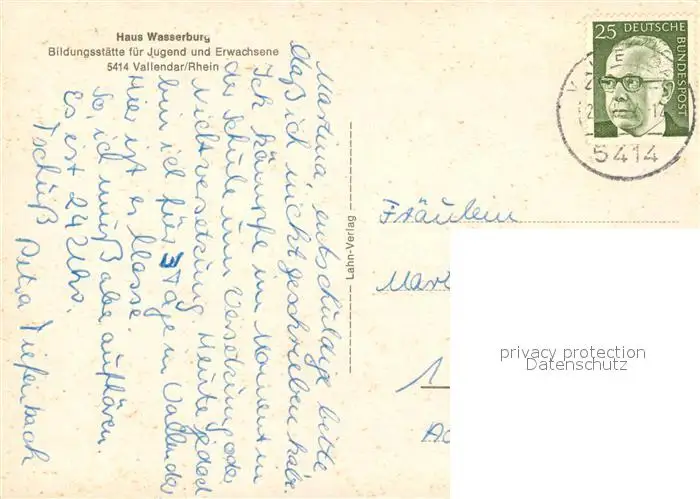 Haus Wasserburg
Bildungsstätte für Jugend und Erwachsene
5414 Vallendar/Rhein
Martina entschuldige bitte
daß ich nicht geschrieben habe.
Ich kämpfe im Moment in
der Schule um Versetzung oder
Nichtversetzung. Heute jedoch
bin ich für 3 Tage in Vallendar
Hier ist es klasse.
So, ich muß aber aufhören.
Es ist 24 Uhr.
Tschüß Petra Tiefenbach
Lahn-Verlag
25 DEUTSCHE
BUNDESPOST
5414
Fräulein
Mart
1
privacy protection
Datenschutz